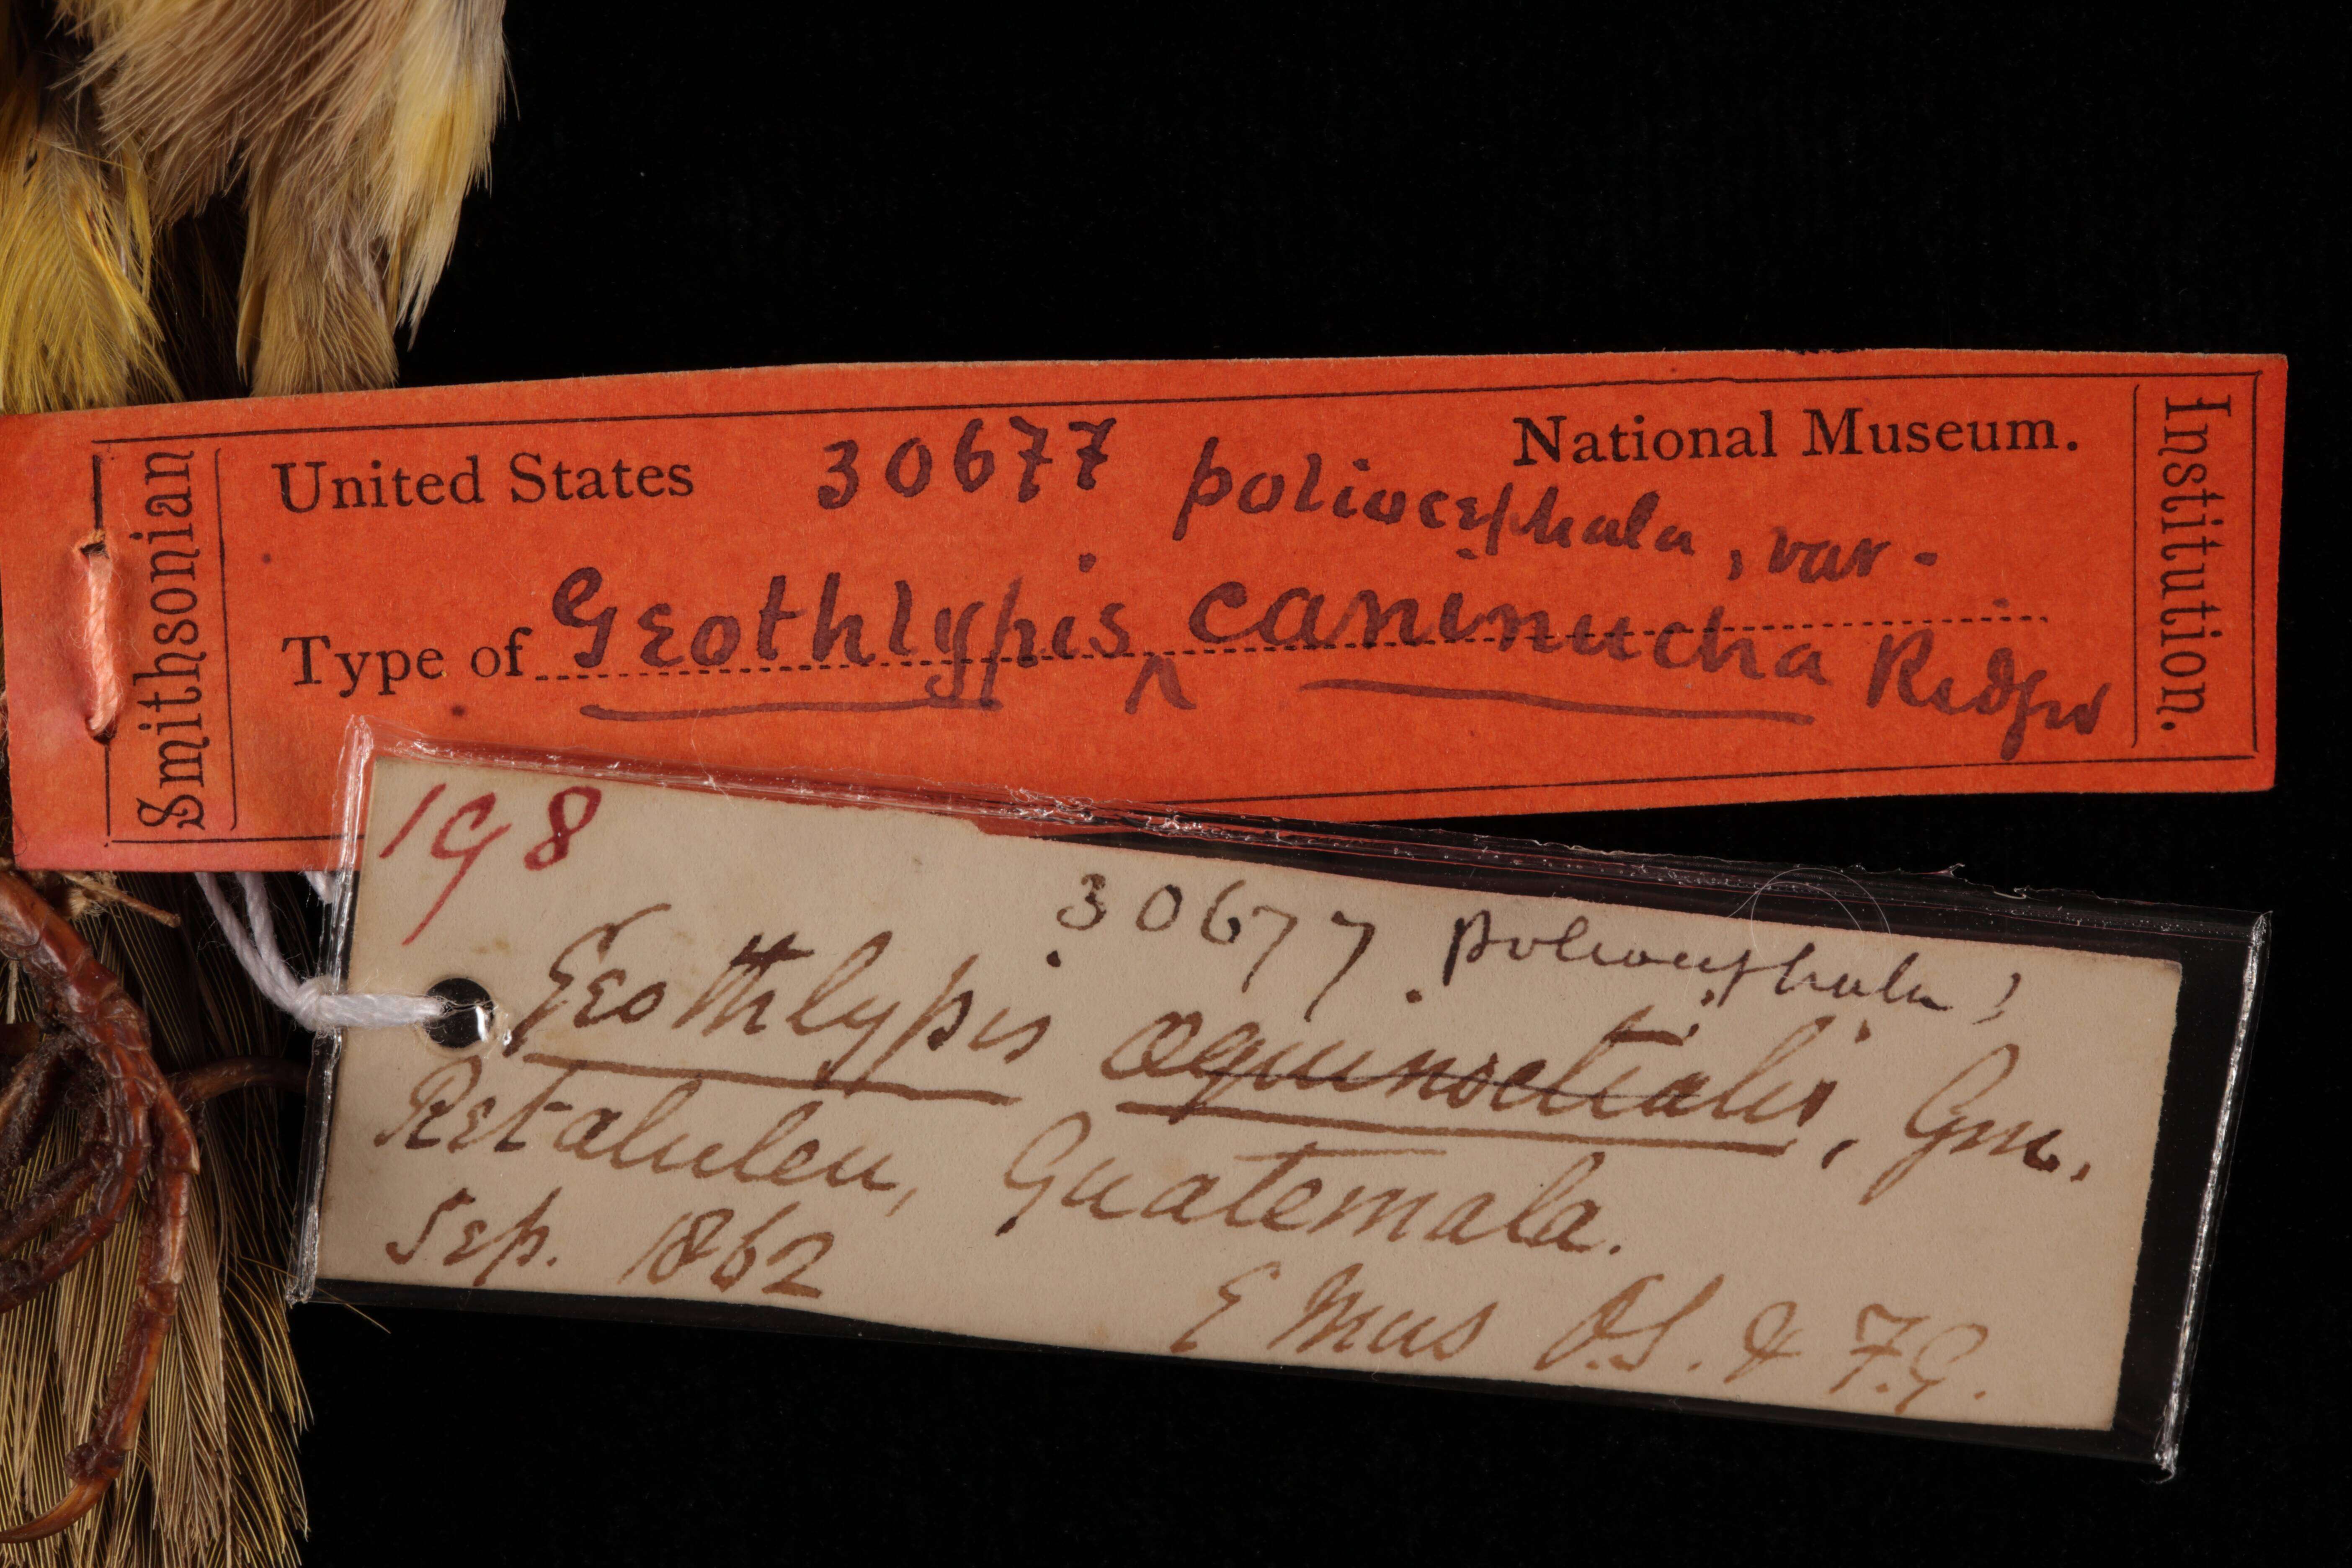 Smithsonian
United States 30677 National Museum.
poliocephala, var.
Type of Geothlypis ^ caninucha Ridgw
Institution.
198
30677 poliocephala,
Geothlypis æquinoctialis, Gm.
Retaluleu, Guatemala.
Sep. 1862
E Mus O.S. & F.G.